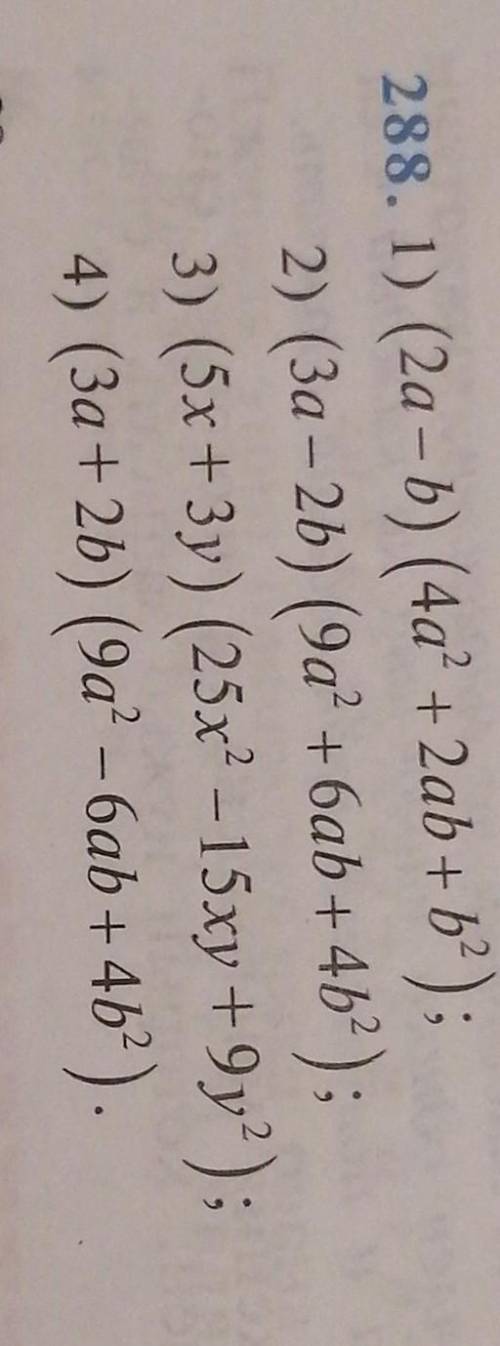 288. 1) (2a – b) (4a² + 2ab + b²);
2) (3a – 2b) (9a² + 6ab + 4b²);
3) (5x + 3y) (25x² – 15xy + 9y²);
4) (3a + 2b) (9a² – 6ab + 4b²).